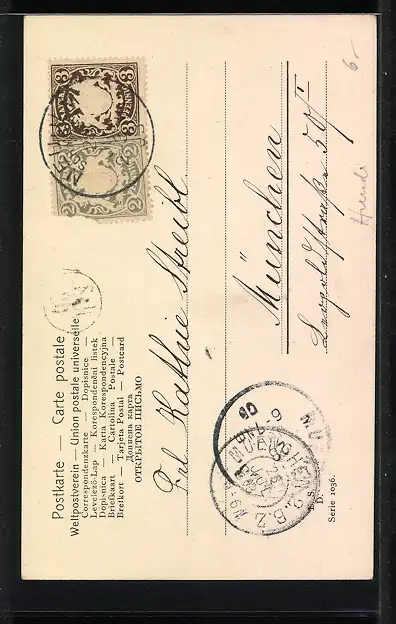 Postkarte — Carte postale
Weltpostverein — Union postale universelle
Correspondenzkarte — Dopisnice —
Levelező-Lap — Korespondenční lístek
Dopisnica — Karta Korespondencyjna
Briefkaart — Cartolina Postale —
Brefkort — Tarjeta Postal — Postcard
Дописна карта
ОТКРЫТОЕ ПИСЬМО
3 3
BAYERN PFENNIG
2 2
Frl. Kathie Streibl
München
Leopoldstraße
MÜNCHEN 2. B.Z.
D.
Serie 1036.
6 -
Hunde